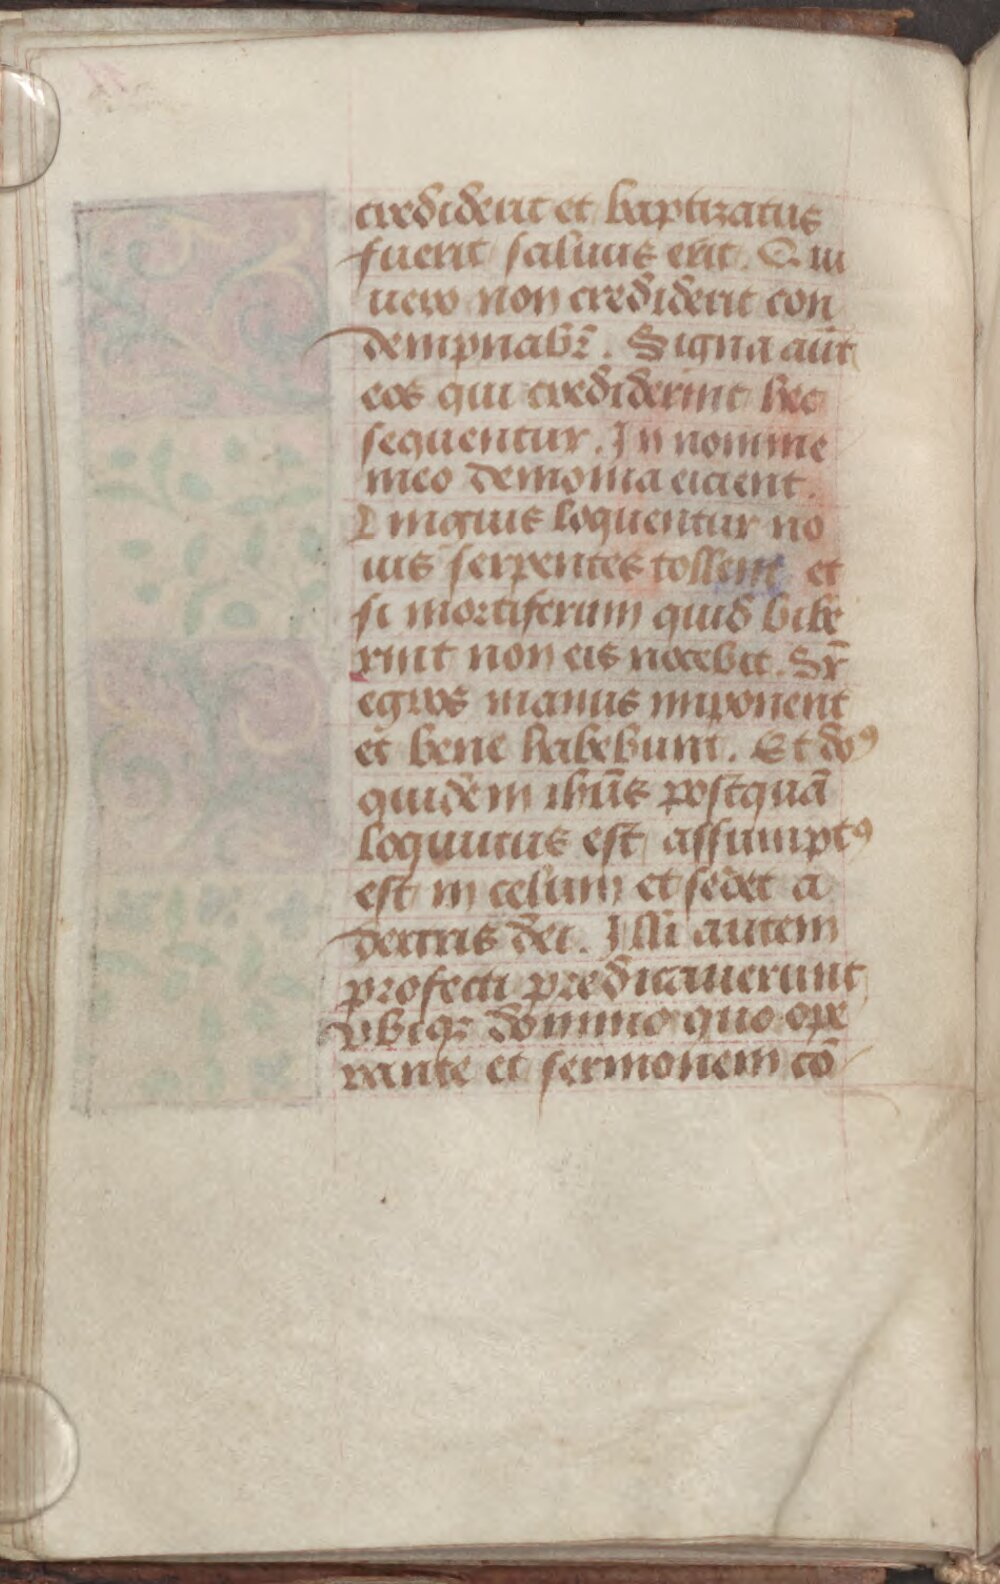 crediderit et baptizatus
fuerit saluus erit. Qui
uero non crediderit con
dempnabr̄. Signa aūt
eos qui crediderint hec
sequentur. In nomine
meo demonia eicient.
Linguis loquentur no
uis serpentes tollent et
si mortiferum quid bibe
rint non eis nocebit. Sr̄
egros manus imponent
et bene habebunt. Et doꝰ
quidem ihūs postquā
loquutus est assumptꝰ
est in celum et sedet a
dextris dei. Illi autem
profecti predicauerunt
vbiqꝫ domino quo ope
rante et sermonem cō